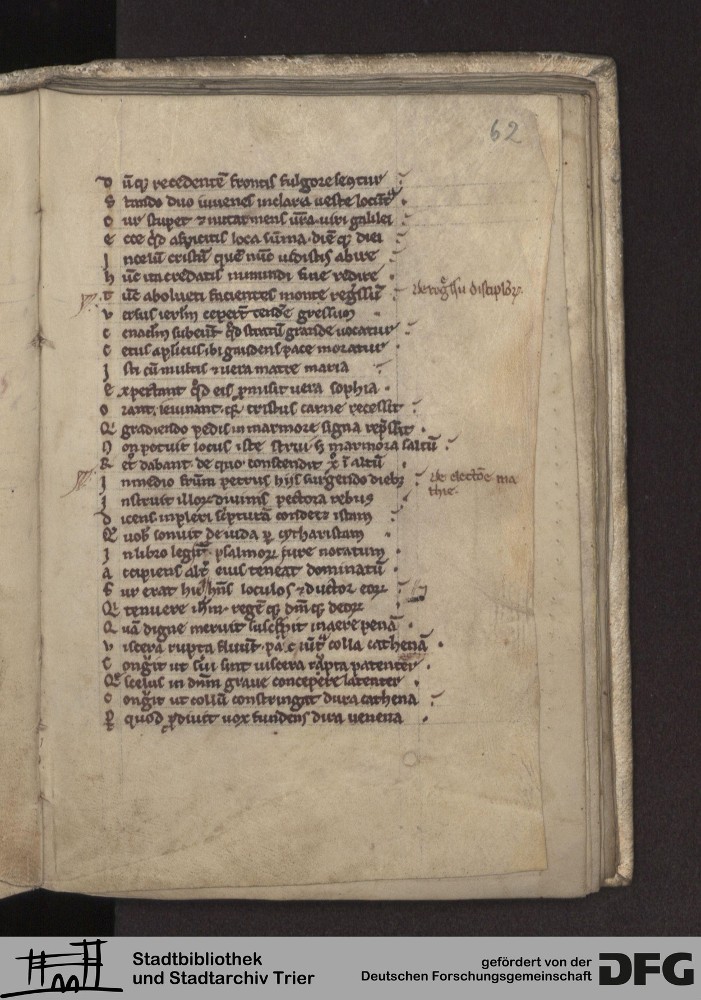 62
D ūq; recedentē frontis fulgore sequūtur
S tando duo iuuenes in clara ueste locūtˀ
C ur stupet ⁊ nutat mens ura uiri galilei
E cce qd aspicitis loca sūma diē q; diei
I n celum cristū quē nūc uidistis abire
h ūc ita credatis in mundi fine redire
T ūc abolueti facientes monte regressū
de rogssu discipulor
V ersus ierlm ceperūt tendere gressum
C enaclm subeūt qd stratū grande uocatur
C etus aplicus ibi gaudens pace moratur
I sti cū multis ⁊ uera matre maria
E xpectant qd eis pmisit uera sophia
O rant ieiunant cristus carne recessit
Q gradiendo pedis in marmore signa repssit
N on potuit locus iste strui marmora saltū
R et dabant de quo conscendit xp̄c ī altū
I n medio frum petrus hijs surgendo diebȝ
de electōe ma
thie
I nstruit illorꝝ diuinis pectora rebus
D icens inpleri scpturā condecet istam
Q uobˀ sonuit de iuda p cytharistam
I n libro legitˀ psalmorꝝ iure notatum
A ccipiens altˀ eius teneat dominatū
F ur erat hic hns loculos ⁊ ductor eorꝝ
Q tenuere ihm regē q; dm q; deorꝝ
Q uā digne meruit suscepit in aere penā
V iscera rupta fluūt colla cathenā
C ongrit ut sui sint uiscera rapta patenter
Q scelus in dnm graue concepere latenter
C ongrit ut collū constringat dura cathena
P quod pdiuit uox fundens dira uenena
Stadtbibliothek
und Stadtarchiv Trier
gefördert von der
Deutschen Forschungsgemeinschaft
DFG